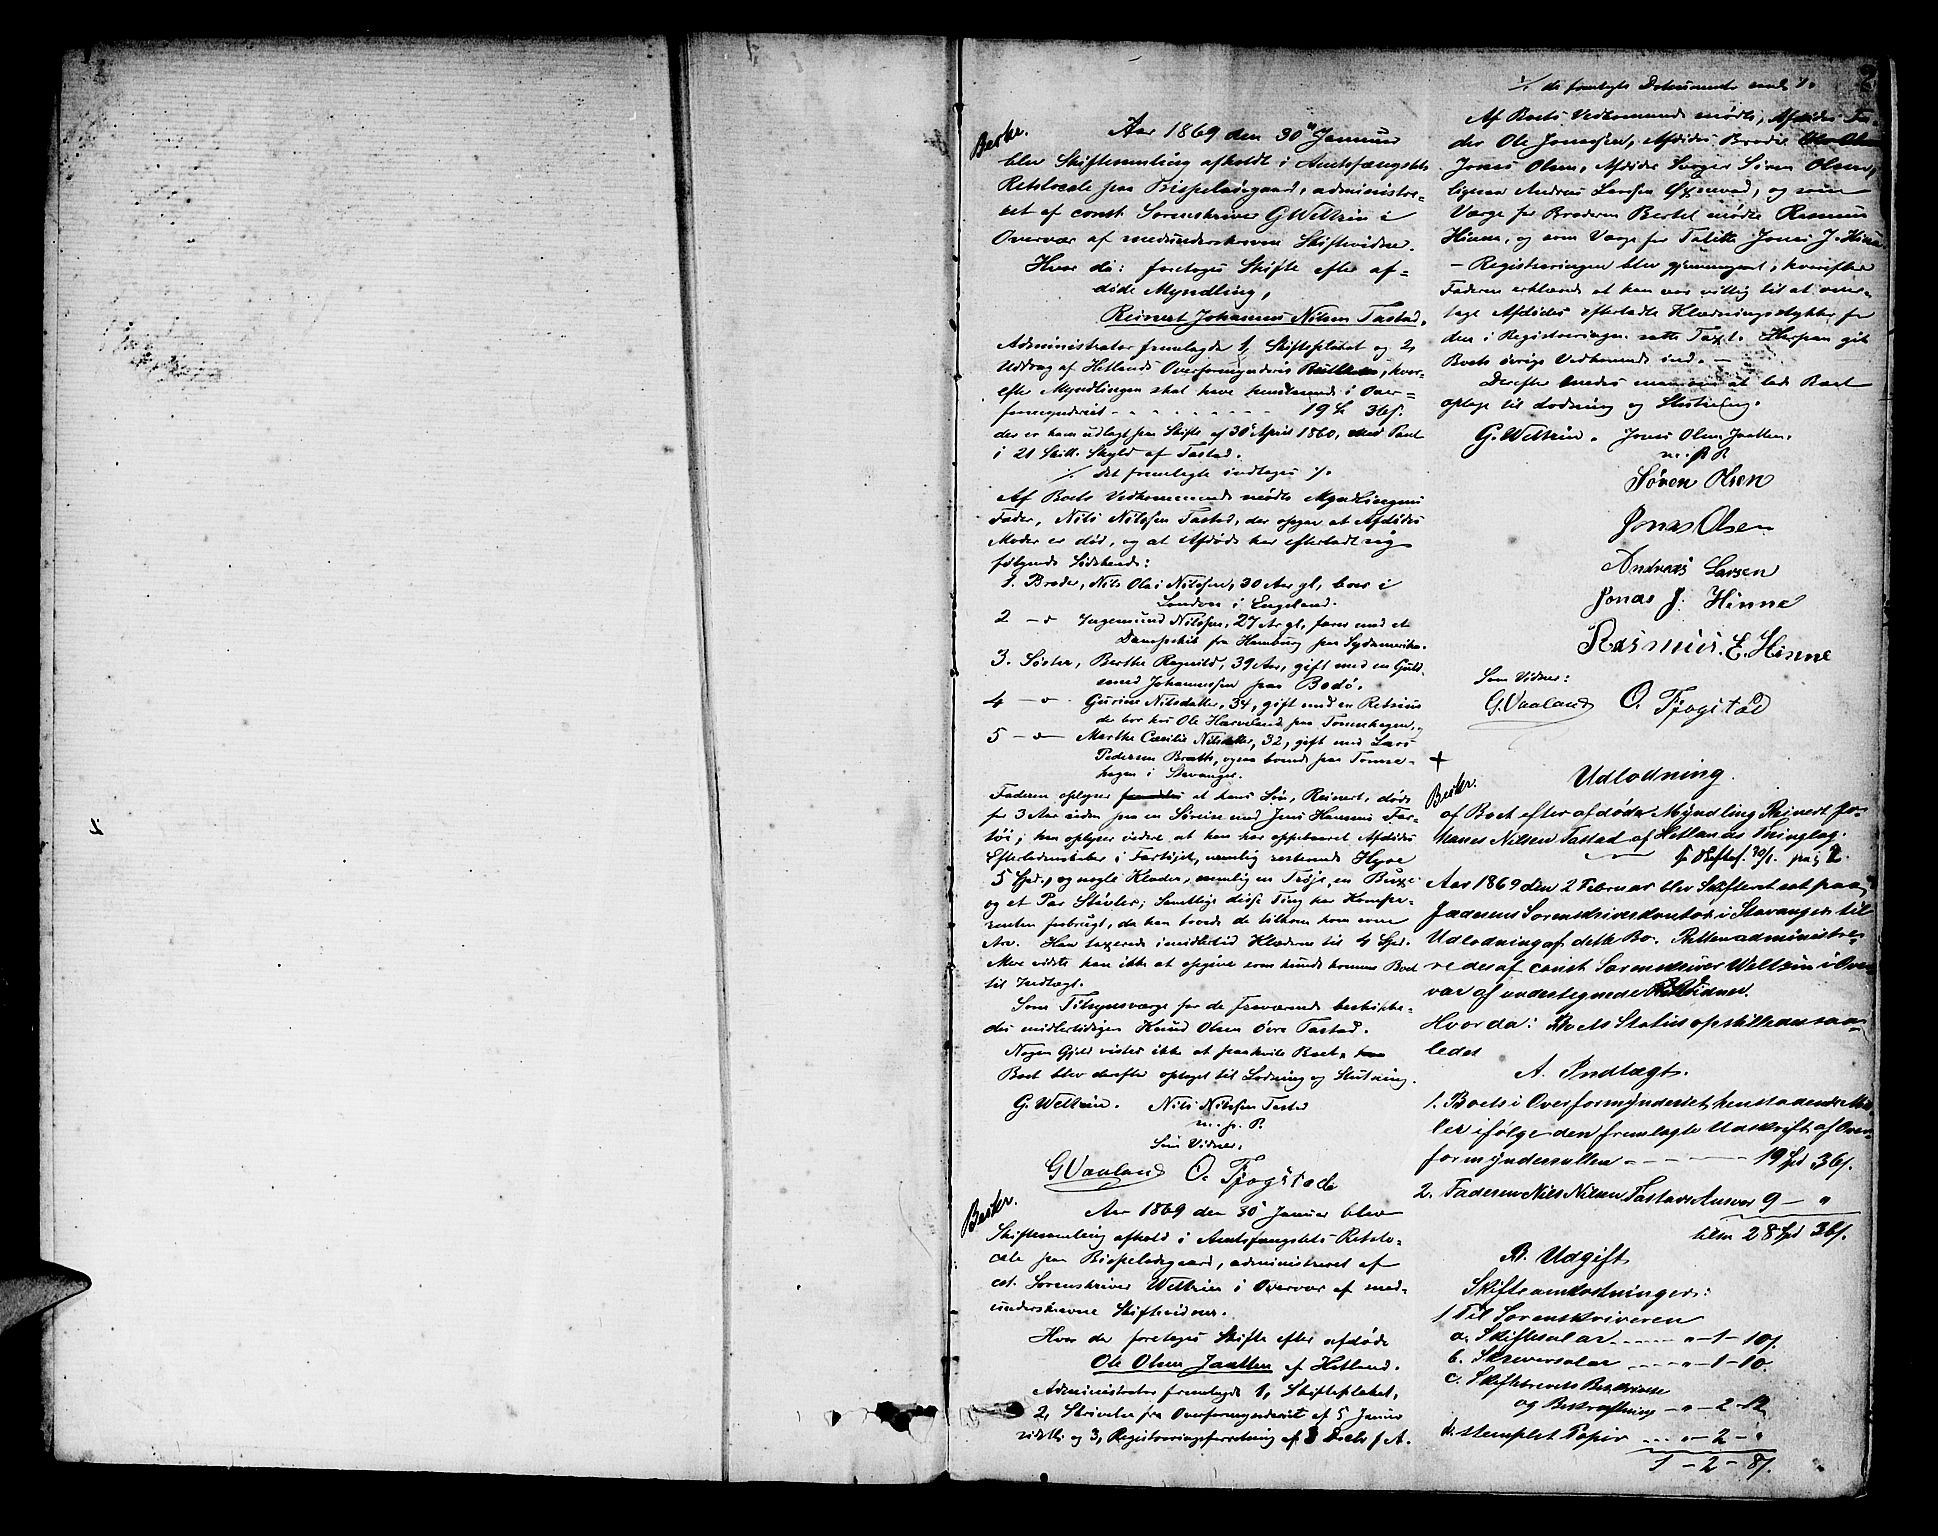 Beskr.
Aar 1869 den 30te Januar
blev Skiftesamling afholdt i Amtsfængslets
Retslocale paa Bispeladegaard, administre-
ret af const. Sorenskriver G Weltzin i
Overvær af medunderskrevne Skiftevidner.
Hvor da: foretoges Skifte efter af=
døde Myndling,
Reinert Johannes Nilsen Tastad.
Administrator fremlagde 1, Skifteplakat og 2,
Uddrag af Hetlands Overformynderies Rullen, hvor-
efter Myndlingen skal have henstaaende i Over=
formynderiet - - - - - - - - - 19 Spd 36 s.
der er ham udlagt paa Skifte af 30 April 1860, med Pant
i 21 Skill. Skyld af Tastad.
./. det fremlagte indtages ./.
Af Boets Vedkommende mødte Myndlingens
Fader, Nils Nilssen Tastad, der opgav at Afdødes
Moder er død, og at Afdøde har efterladt sig
følgende Sødskende:
1. Broder, Nils Olai Nilssen, 30 Aar gl, boer i
London i Engeland.
2 - o Ingemund Nilssen, 27 Ar gl, farer med et
Dampskib fra Hamburg paa Sydamerika.
3. Søster, Berthe Ragnild, 39 Aar, gift med en Guld
smed Johannessen paa Bodö.
4 - o - Gurine Nilsdatter, 34, gift med en
de bor hos Ole Harveland paa Tommhagen, og
5 - o - Marthe Cæcilie Nilsdatter, 32, gift med Lars
Pedersen Bratth, ogsaa boende paa Tomme-
hagen i Stavanger.
Faderen oplyser at hans Søn, Reinert, døde
for 3 Aar siden paa en Søreise med Jens Hansens Far-
töi; han oplyser videre at han har oppebaaret Afdødes
Efterladenskaber i Fartøjet, nemlig resterende Hyre
5 Spd., og nogle Klæder, nemlig en Trøje, en Buxe
og et Par Støvler; Samtlige disse Ting har Kompa-
renten forbrugt, da han troede de tilkom ham som
Arv. Han taxerede imidlertid Klæderne til 4 Spd.
Mere vidste han ikke at opgive som kunde komme Boet
til Indtægt.
Som Tilsynsværge for de Fraværende beskikke-
des midlertidigen Knud Olsen övre Tastad.
Nogen Gjeld vistes ikke at paahvile Boet.
Boet blev derefter optaget til Lodning og Slutning.
G. Weltzin. Nils Nilssen Tastad
m. p. P.
Som Vidner,
G Vaaland O. Tjogstade
Beskr.
Aar 1869 den 30 Januar blev
Skiftesamling afhold i Amtsfængslets Retslo-
cale paa Bispeladegaard, administreret af
cst. Sorenskriver Weltzin i Overvær af med-
underskrevne Skiftevidner.
Hvor da foretoges Skifte efter afdøde
Ole Olsen Jaatten af Hetland.
Administrator fremlagde 1, Skifteplakat,
2, Skrivelse fra Overformynderiet af 5 Januar
sidstl. og 3, Registreringsforretning af 8 Decbr f. A.
2
./. de fremlagte Documenter indt. ./.
Af Boets Vedkommende mødte, Afdødes Fa-
der Ole Jonassen, Afdødes Broder
Jonas Olsen, Afdødes Svoger Søren Olsen,
ligesaa Andreas Larsen og som
Værge for Broderen Bertel mødte Rasmus
Hinne, og som Værge for Jonas J. Hinne
- Registreringen blev gjennemgaaet, hvorefter
Faderen erklærede at han var villig til at over-
tage Afdødes efterladte Klædningsstykker for
den i Registreringen satte Taxt. Herpaa gik
Boets øvrige Vedkommende ind. -
Derefter enedes man om at lade Boet
optage til Lodning og Slutning.
G. Weltzin. Jonas Olsen Jaatten.
m. p. P
Søren Olsen
Jonas Olsen
Andreas Larsen
Jonas J. Hinne
Rasmus. E. Hinne
Som Vidner:
G. Vaaland O. Tjogstad
+
Beskr.
Udlodning
af Boet efter afdøde Myndling Reinert Jo-
hanes Nilsen Tastad af Hetlands Thinglag.
fr. Skiftes. 30/1. pag 2.
Aar 1869 den 2 Februar blev Skifteret sat paa
Jæderens Sorenskriverkontor i Stavanger til
Udlodning af dette Bo. Retten administre-
redes af const Sorenskriver Weltzin i Over
vær af undertegnede Vidner.
Hvor da: Boets Status opstilledes saa-
ledes
A. Indtægt.
1. Boets i Overformynderiet henstaaende Mid
ler ifølge den fremlagte Udskrift af Over-
formynderrullen - - - - 19 Spd 36 s.
2. Faderen Nils Nilsen Tastads Ansvar 9 - "
tilsn 28 Spd 36 s.
B. Udgift
Skifteomkostninger:
1 Til Sorenskriveren
a. Skiftesalar ---- " - 1 - 10 s.
b. Skriversalar ---- " - 1 - 10.
c. Skiftebrevets Beskrivelse
og Bekræftning - " - 2 - 12
d. stemplet Papir ... " - 2 - "
1 - 2 - 8 s.